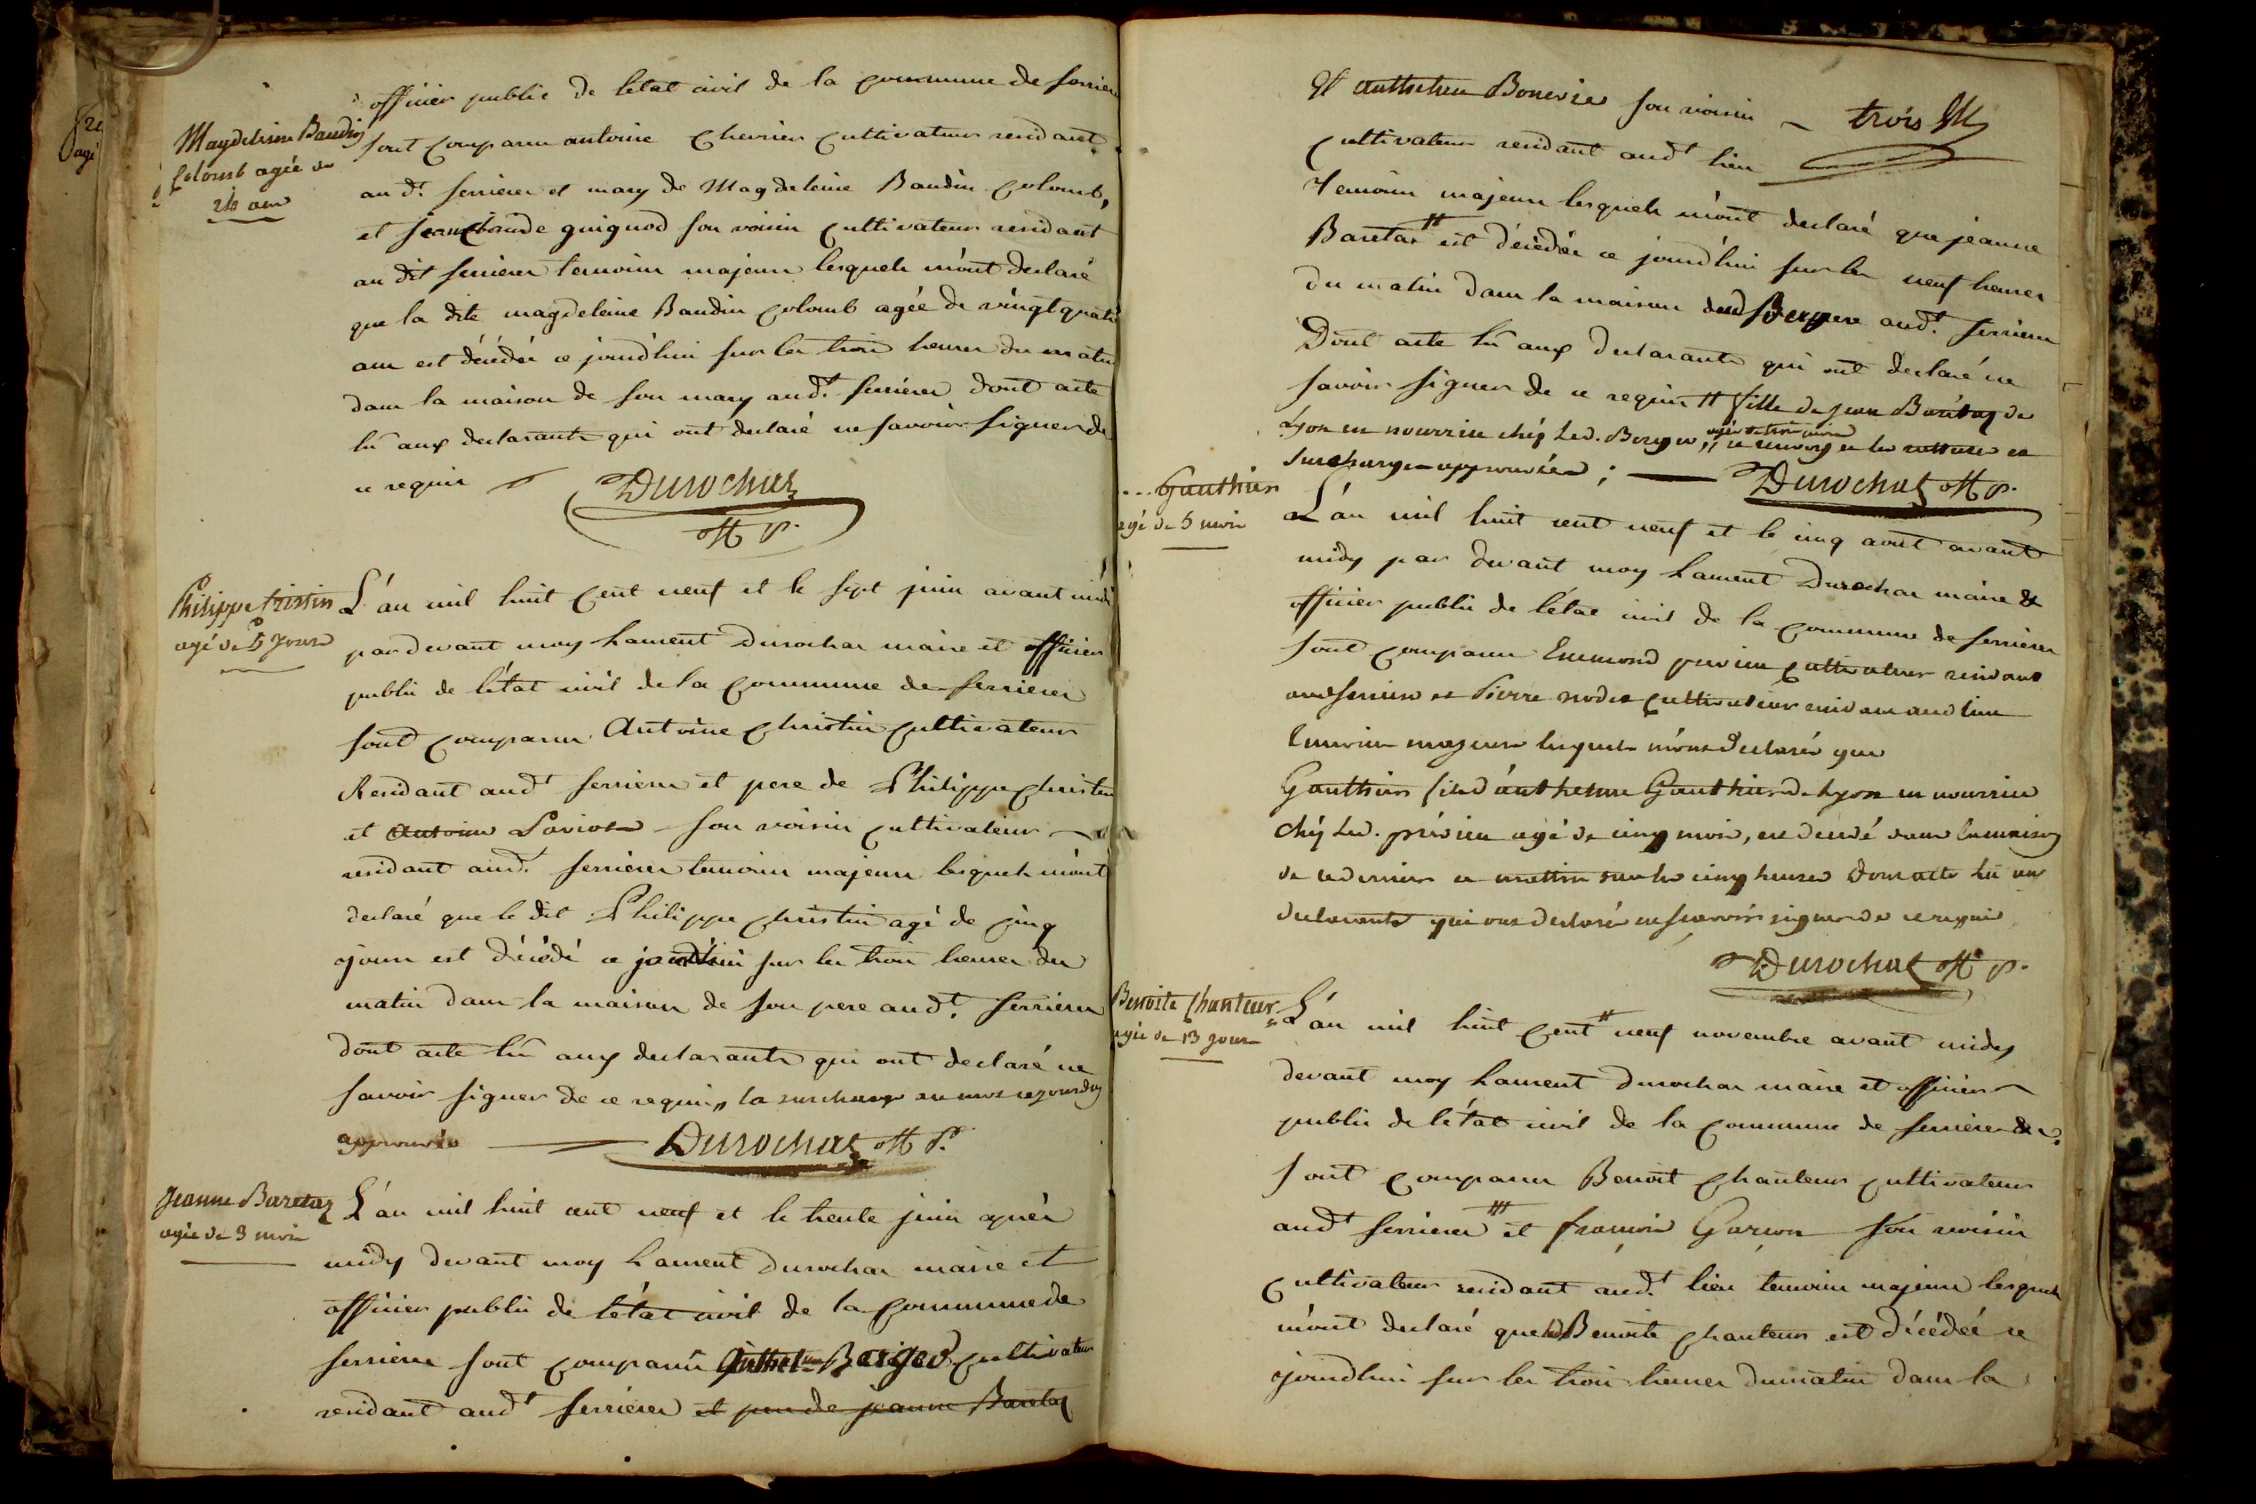 officier public de letat civil de la commune de serriere
Magdeleine Baudin
Colomb agée de
24 ans
sont comparu antoine Chevrier cultivateur residant
au dt serrieres et mary de Magdeleine Baudin Colomb,
et jean claude guignod son voisin cultivateur residant
au dit serrieres temoins majeurs lesquels m'ont declaré
que la dite magdeleine Baudin colomb agée de vingt quatre
ans est décédée ce jourd'hui sur les trois heures du matin
dans la maison de son mary audt serrieres dont acte
lû aux declarants qui ont declaré ne savoir signer de
ce requis
Durochat
M P.
Philippe Cristin
agé de 5 jours
L'an mil huit cent neuf et le sept juin avant midi
par devant moy Laurent Durochat maire et officier
public de l'état civil de la commune de serrieres
sont comparu Antoine Christin cultivateur
Residant audt serrieres et pere de Philippe christin
et antoine son voisin cultivateur
residant audt serrieres temoins majeurs lesquels m'ont
declaré que le dit Philippe christin agé de cinq
jours est décédé ce jourd'hui sur les trois heures du
matin dans la maison de son pere audt serrieres
dont acte lû aux declarants qui ont declaré ne
savoir signer de ce requis, la surcharge au mot cejourdhuy
approuvée
Durochat M P.
Jeanne Baretaz
agée de 3 mois
L'an mil huit cent neuf et le trente juin après
midy devant moy Laurent Durochat maire et
officier public de l'état civil de la commune de
serrieres sont comparu Anthelme Berger cultivateur
residant audt serrieres et pere de jeanne Baretaz
et anthelme son voisin trois M
cultivateur residant audt lieu
Temoins majeurs lesquels m'ont declaré que jeanne
Baretaz # est décédée ce jourd'hui sur les neuf heures
du matin dans la maison dud Berger audt serrieres
Dont acte lû aux declarants qui ont declaré ne
savoir signer de ce requis # fille de jean Baretaz de
Lyon en nourrice chéz led. Berger, agée de trois mois ,, ce renvoy et les ratture et
surcharges approuvées ;
Durochat M P.
... Gauthier
agé de 5 mois
L'an mil huit cent neuf et le cinq aout avant
midy par devant moy Laurent Durochat maire &
officier public de l'état civil de la commune de serrieres
sont comparu Ennemond cultivateur residant
aud serrieres et Pierre cultivateur residant aud lieu
temoins majeurs lesquels m'ont declaré que
Gauthier fils d'anthelme Gauthier de Lyon en nourrice
chéz led. agé de cinq mois, est decedé dans la maison
de ce dernier ce mattin sur les cinq heures dont acte lû aux
declarants qui ont declaré ne scavoir signer de ce requis
Durochat M P.
Benoite Chanteur
agée de 13 jours
L'an mil huit cent # neuf novembre avant midy
devant moy Laurent Durochat maire et officier
public de l'état civil de la commune de serrieres
sont comparu Benoit Chanteur cultivateur
audt serrieres et françois son voisin
cultivateur residant audt lieu temoins majeurs lesquels
m'ont declaré que Benoite chanteur est décédée ce
jourdhui sur les trois heures du matin dans la